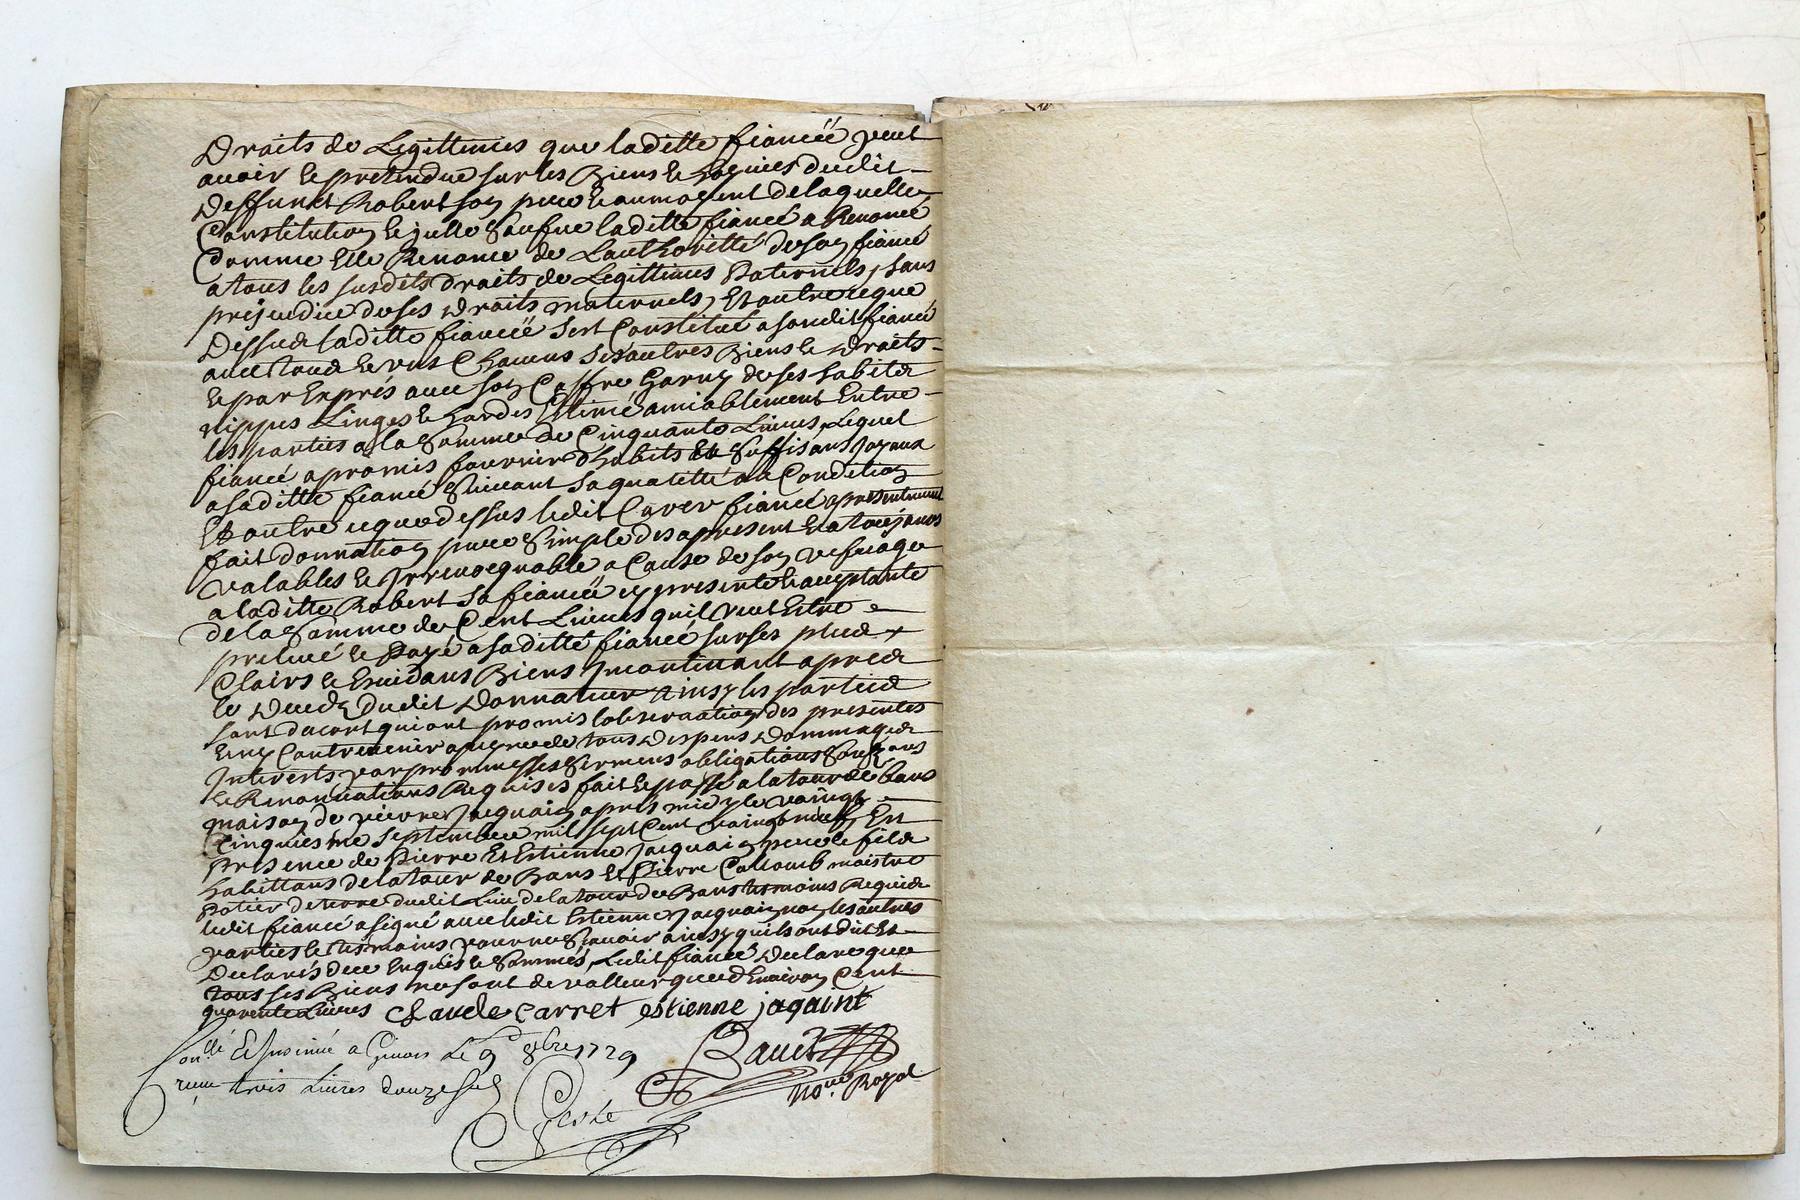 Droits de Legittimes que laditte fianceé peut
avoir et pretendre sur les Biens et hoyries dudit
Deffunct Robert son pere et au moyent de laquelle
Constitution et jutte laditte fiancé a Renoncé
Comme Elle Renonce de Lauthoritté de son fiancé
a tous les susdits droits de Legittimes Paternels, sans
prejeudice de ses Droits maternels, Et outre ce que
Dessus laditte fianceé sest Constitué a sondit fiancé
avec tous et uns Chacuns ses autres Biens et Droits
et par Exprés avec son Coffre Garny de ses habits
nippes Linges et hardes Estimé amiablement Entre
les parties a la Somme de Cinquante Livres, Lequel
fiancé a promis fournir d'habits et Suffisans Joyaux
a saditte fiancé Suivant sa qualitté et Condition
Et outre ce que dessus ledit Carret fiancé a presentement
fait donnation pure Simple des apresent et a toujours
valables et Irrevocquable a Cause de son vefvage
a laditte Robert sa fianceé cy presente et acceptante
de la Somme de Cent Livres qu'il veut Estre
prelevé et Payé a saditte fiancé sur ses plus
Clairs et Evidans Biens Incontinant apres
le Deceds dudit Donnateur Ainsy les parties
sont d'acort qui ont promis l'observation des presentes
et n'y Contrevenir a peyne de tous Despens Dommages
Interests par promesses Sermens obligations Soumissions
et Renonciations Requises fait et passé a la tour de bans
maison de pierre Jacquain apres midy le vaingt
Cinquiesme Septembre mil sept Cent vaingt neuf, En
Presence de Pierre Et Estienne Jacquain pere et fils
habittans de la tour de Bans Et Pierre Collomb maistre
Potier de terre dudit Lieu de la tour de Bans tesmoins Requis
ledit fiancé a signé avec ledit Estienne Jacquain non les autres
parties et tesmoins pour ne Scavoir ainsy quils ont dit Et
Declarés de ce Enquis et Sommés, Ledit fiancé Declare que
tous ses Biens ne sont de valleur que d'Environ Cent
quarente Livres Claude Carret estienne jaquint
Con.llé Et Insinué a Givors Le 9 8bre 1729
receu trois Livres douze sols
No.re Royal